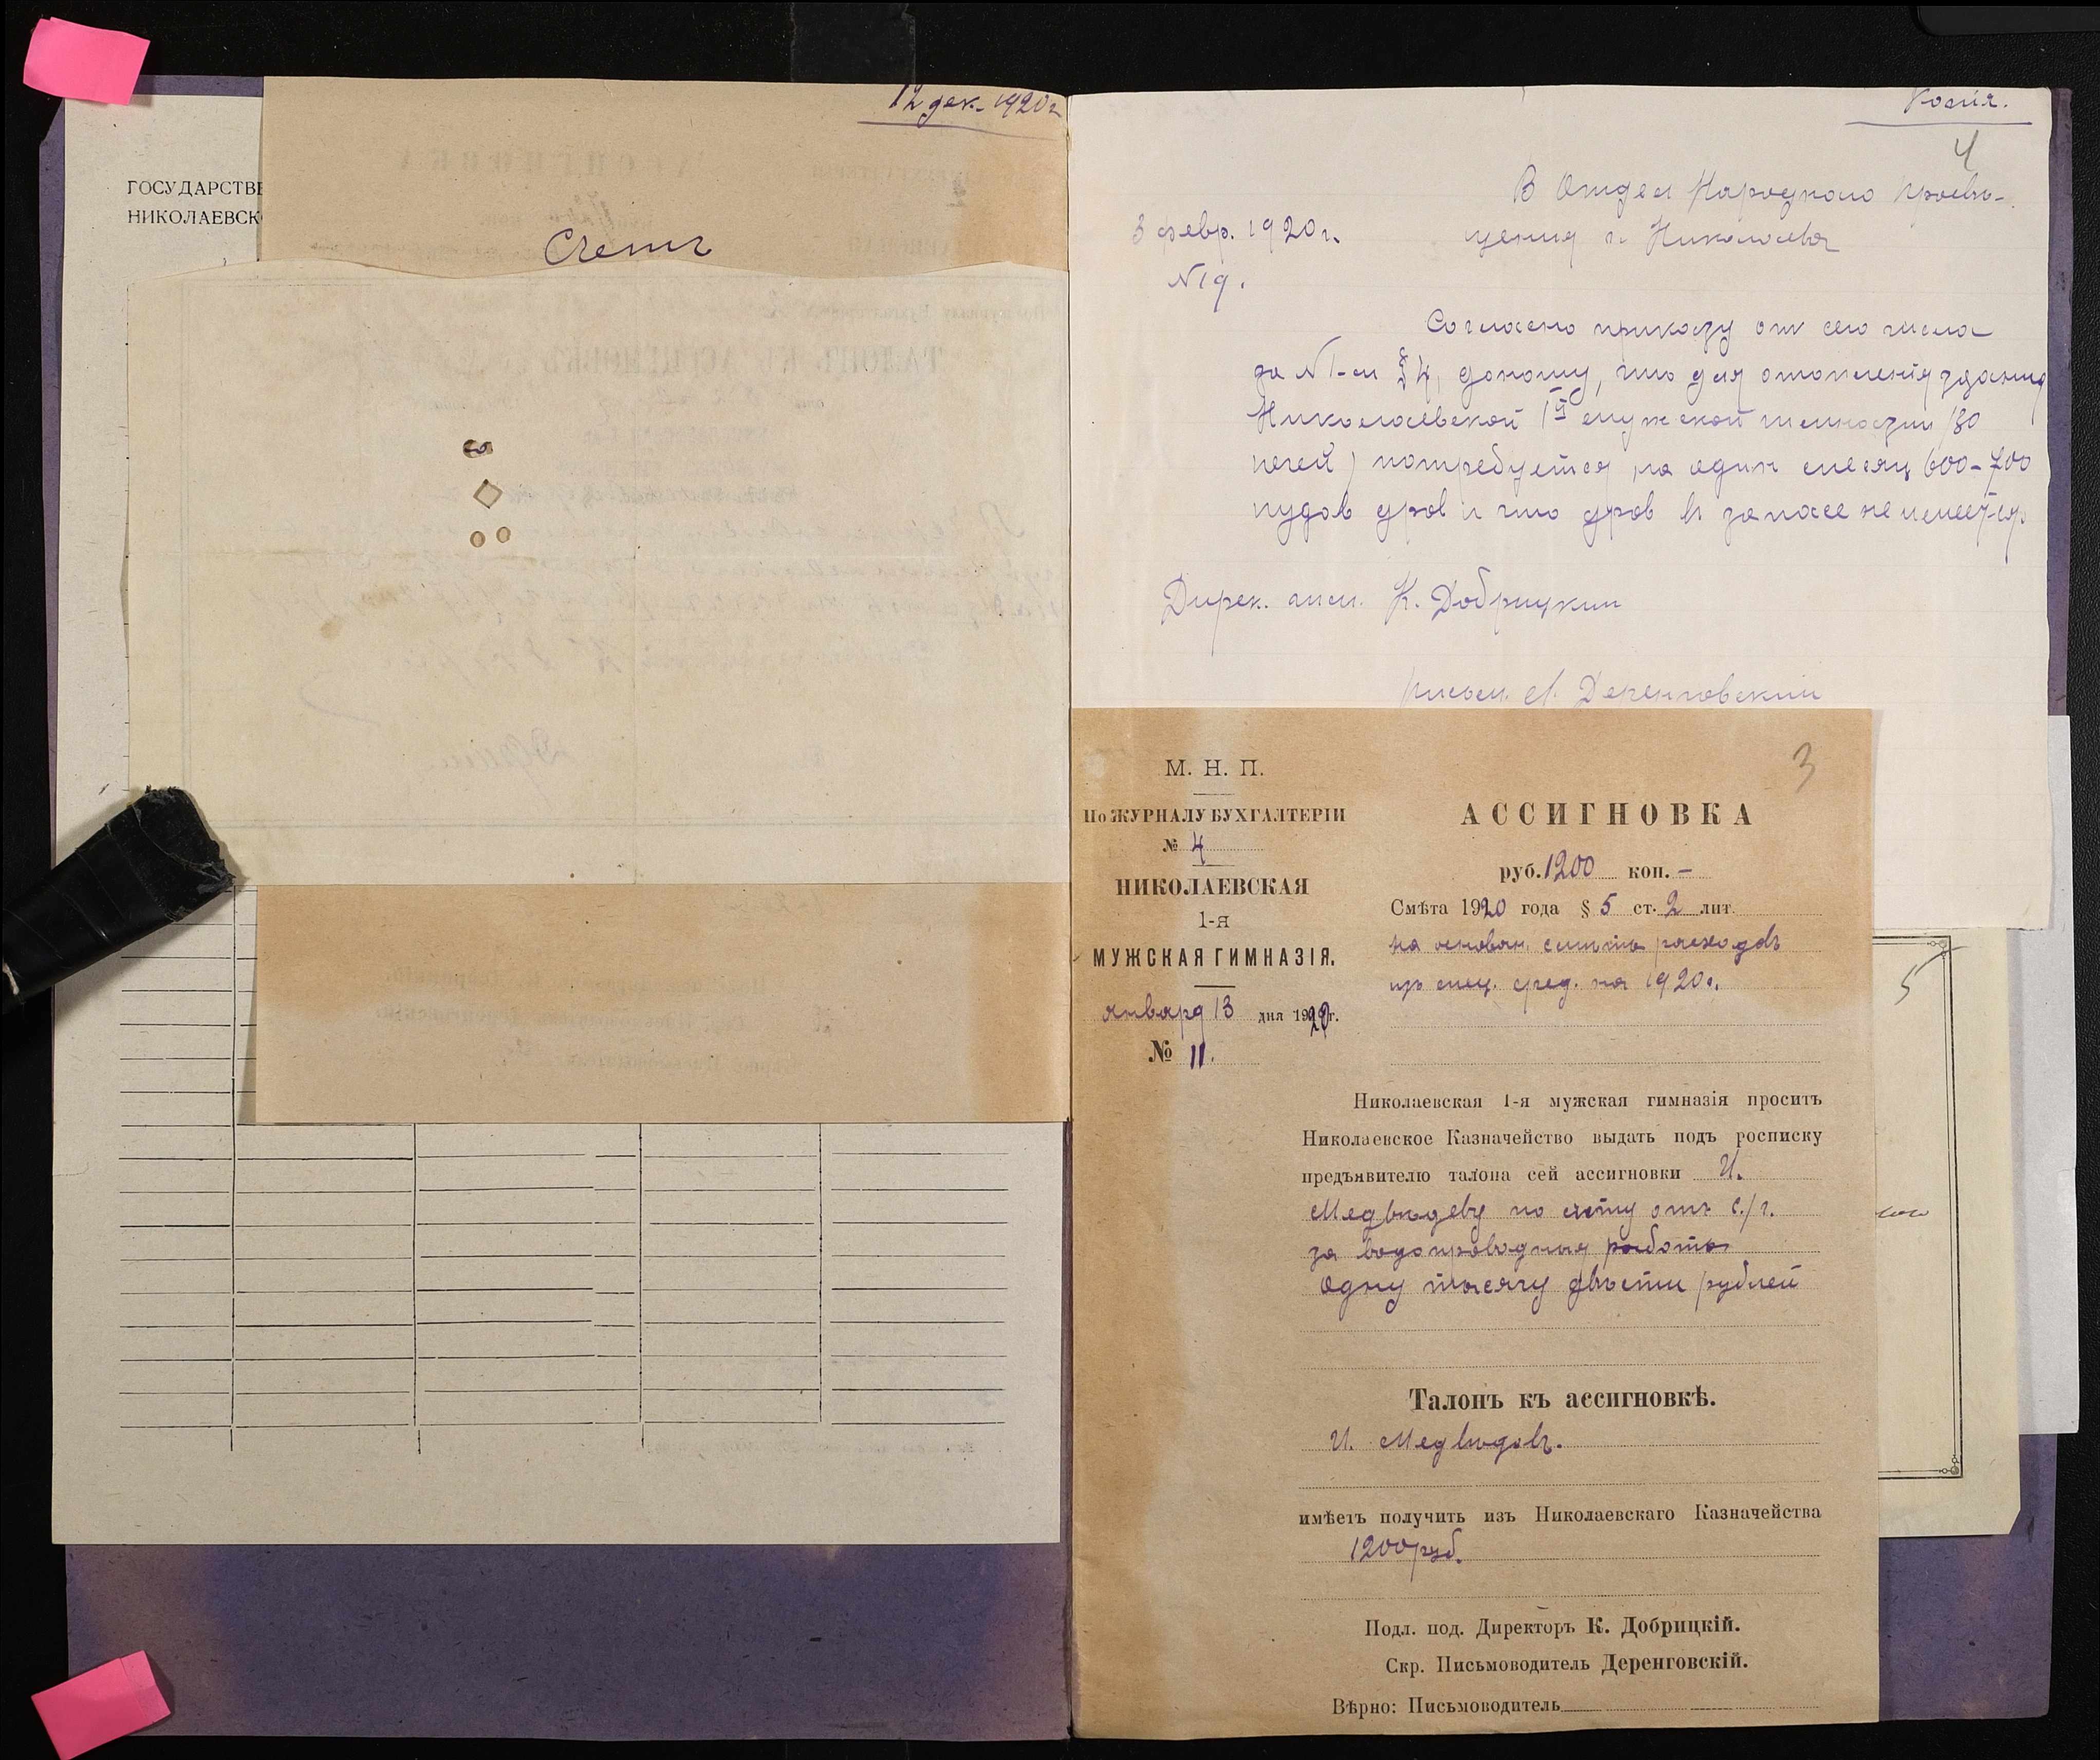 12 дек. 1920 г
ГОСУДАРСТВЕ
НИКОЛАЕВСК
Счетъ
Копія.
4
В Отдел Народного Просве-
3 февр. 1920 г.
щения г. Николаева
N 19.
Согласно приказу от сего числа
за N 1-м § 4, доношу, что для отопленія здания
Николаевской 1й мужской гимназии /30
печей/ потребуется на один месяц 600-700
пудов дров и что дров в запасе не имеется.
Дирек. гим. К. Добрицкий
письм. Деренговский
3
М. Н. П.
По ЖУРНАЛУ БУХГАЛТЕРІИ
№ 4
НИКОЛАЕВСКАЯ
1-я
МУЖСКАЯ ГИМНАЗІЯ.
января 13 дня 1920г.
№ 11.
АССИГНОВКА
руб. 1200 коп. —
Смѣта 1920 года § 5 ст. 2 лит.
на основан. смѣты расходовъ
изъ спец. сред. на 1920 г.
Николаевская 1-я мужская гимназія проситъ
Николаевское Казначейство выдать подъ росписку
предъявителю талона сей ассигновки И.
Медвѣдеву по счету отъ с./г.
за водопроводныя работы
одну тысячу двѣсти рублей
Талонъ къ ассигновкѣ.
И. Медвѣдевъ.
имѣетъ получить изъ Николаевскаго Казначейства
1200 руб.
Подл. под. Директоръ К. Добрицкій.
Скр. Письмоводитель Деренговскій.
Вѣрно: Письмоводитель
5